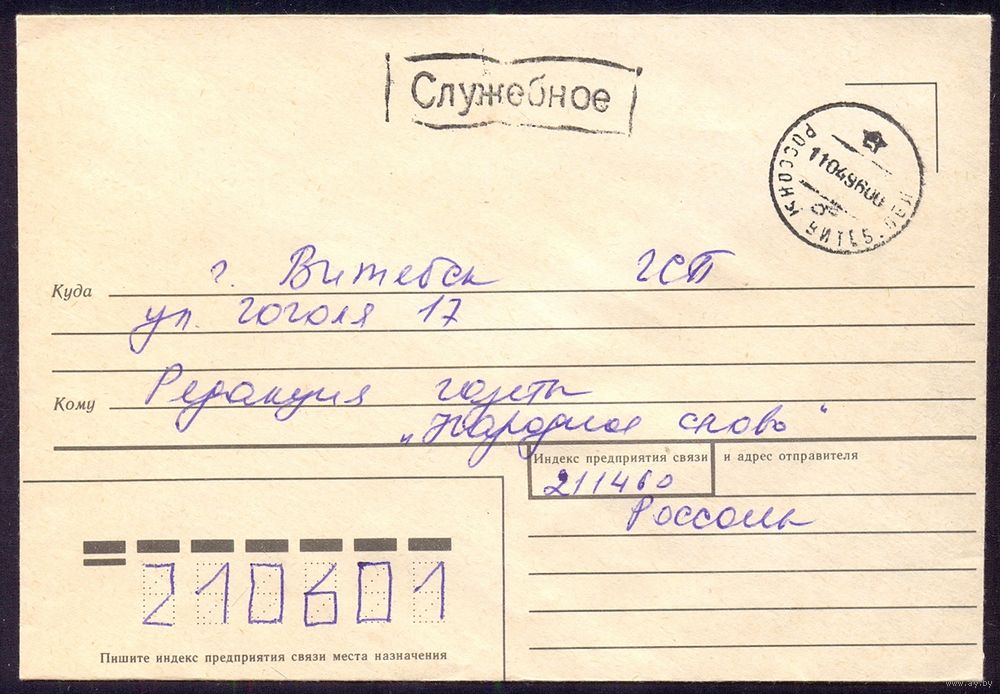 Служебное
РОССОНЫ ВИТЕБ. ОБЛ
11049600
Куда г. Витебск ГСП
ул. Гоголя 17
Кому Редакция газеты
„Народное слово"
Индекс предприятия связи и адрес отправителя
211460
Россоны
210601
Пишите индекс предприятия связи места назначения
www.ay.by